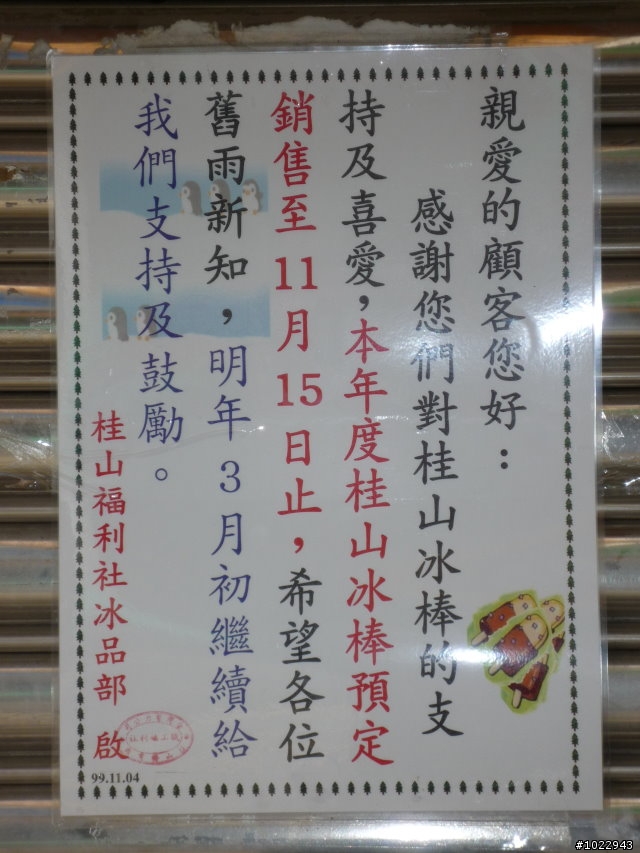 親愛的顧客您好：
感謝您們對桂山冰棒的支
持及喜愛，本年度桂山冰棒預定
銷售至11月15日止，希望各位
舊雨新知，明年3月初繼續給
我們支持及鼓勵。
桂山福利社冰品部 啟
99.11.04
#1022943